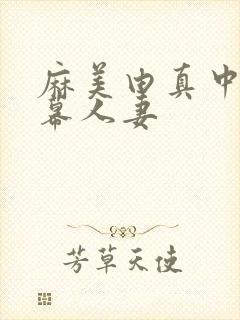 麻美由真中
幕人妻
芳草天使